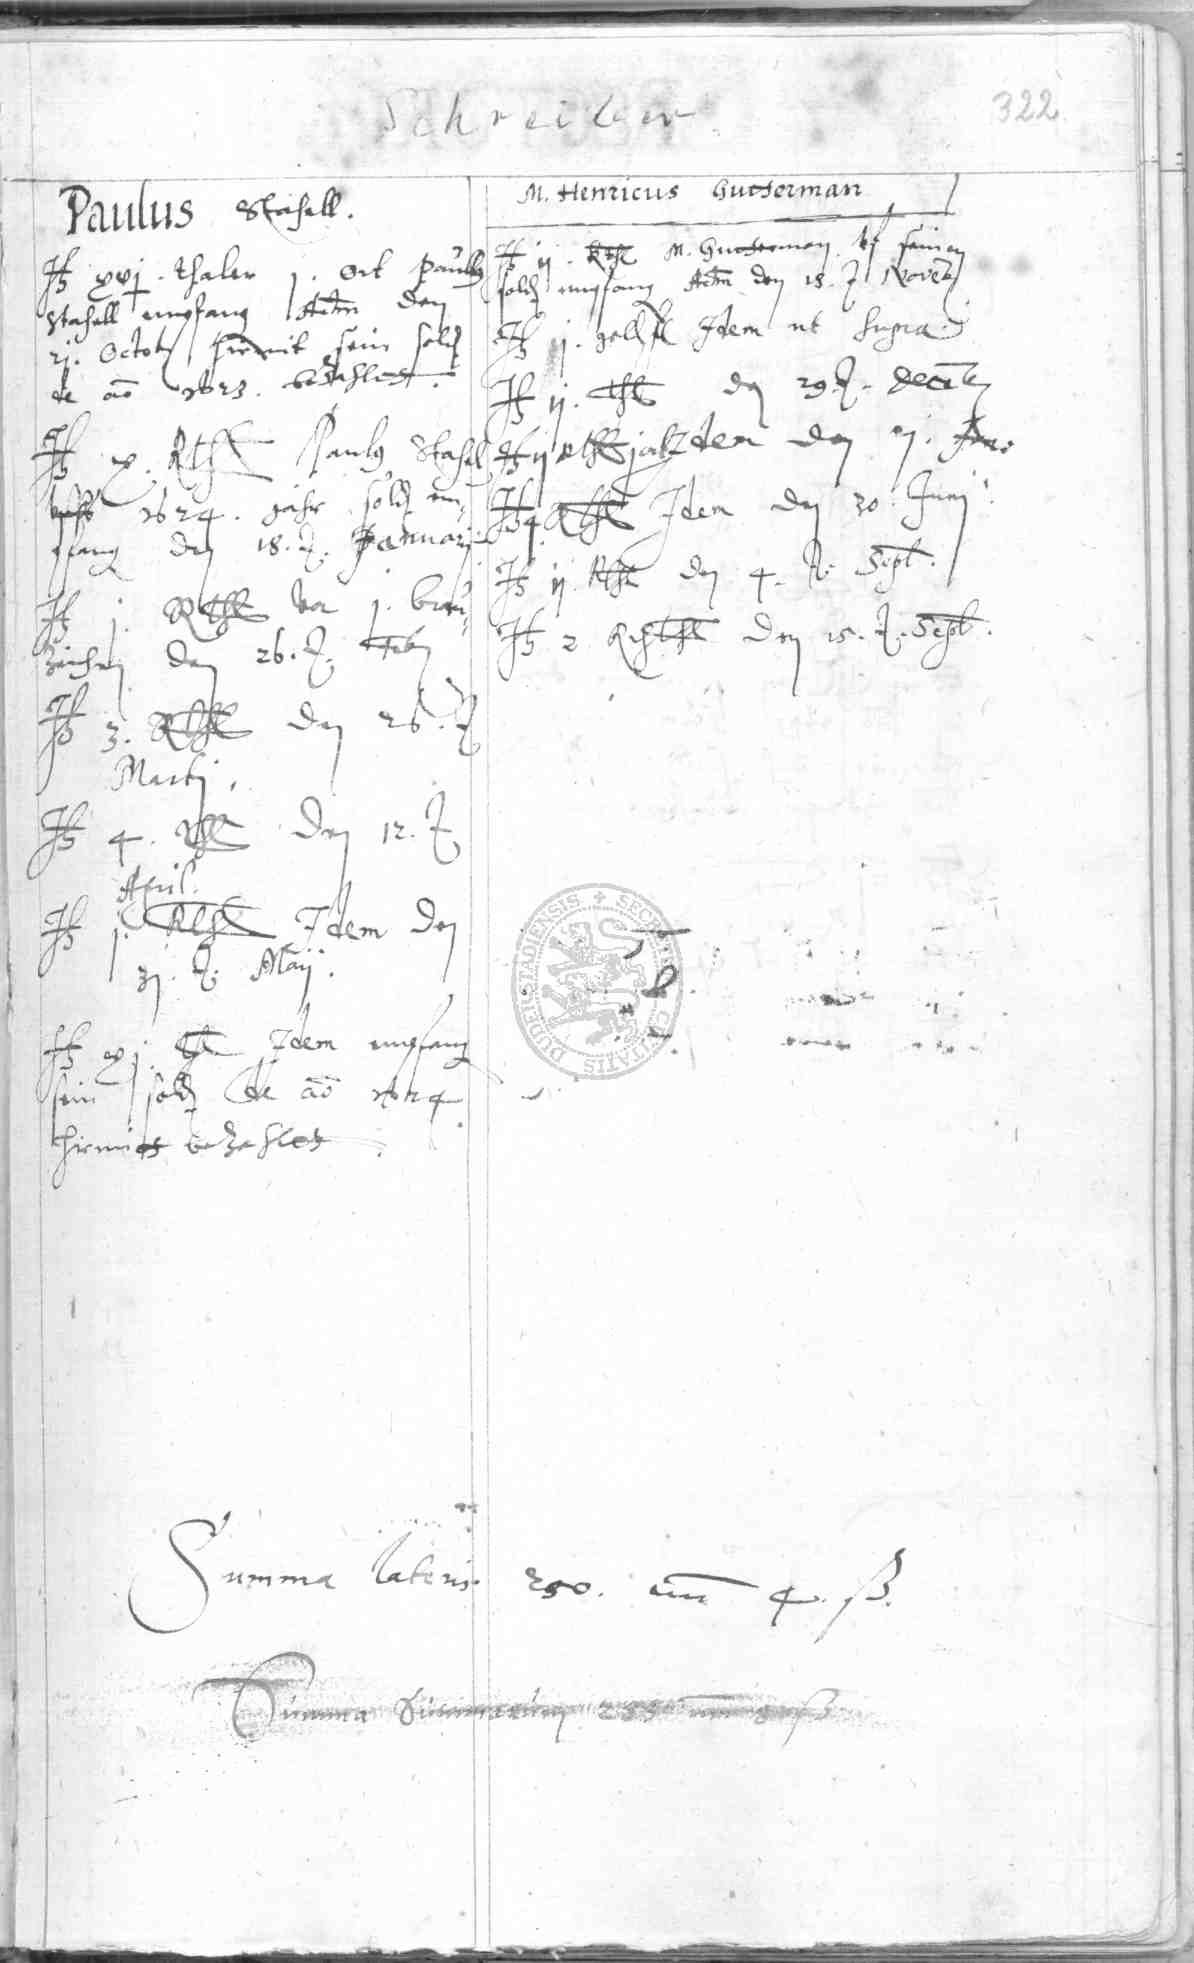 Schreiber
322
Paulus Stahell.
It xvj. thaler j. Ort Paulus
Stahell empfang Actm den
21. Octob hirmit sein sold
de ao 1623. bezahlet.
It x. Rthl Paulus Stahel
uffs 1624. Jahr sold em-
pfang den 18. Januarij
It j. Rthl vor j. brau-
zeichen den 26. Feb
It 3. Rthl den 26.
Martij.
It 4. Rthl den 12.
April.
It j. Rthl Idem den
31. Maij.
It xj. thl Idem empfang
sein sold de ao 1624
hirmit bezahlet
M. Henricus Gutterman
It ij. Rthl M. Gutterman uf seinen
sold empfang Actm den 18. Novemb
It j. gold fl Idem ut supra
It ij. thl den 29. Decemb
It ij Rthl Idem den
It 4. Rthl Idem den 30. Junij
It ij. Rthl den 4. Sept.
It 2 Rthl den 15. Sept.
SECRETUM CIVITATIS DUDERSTADIENSIS
Summa lateris 250. 4. ß.
Summa Summarum